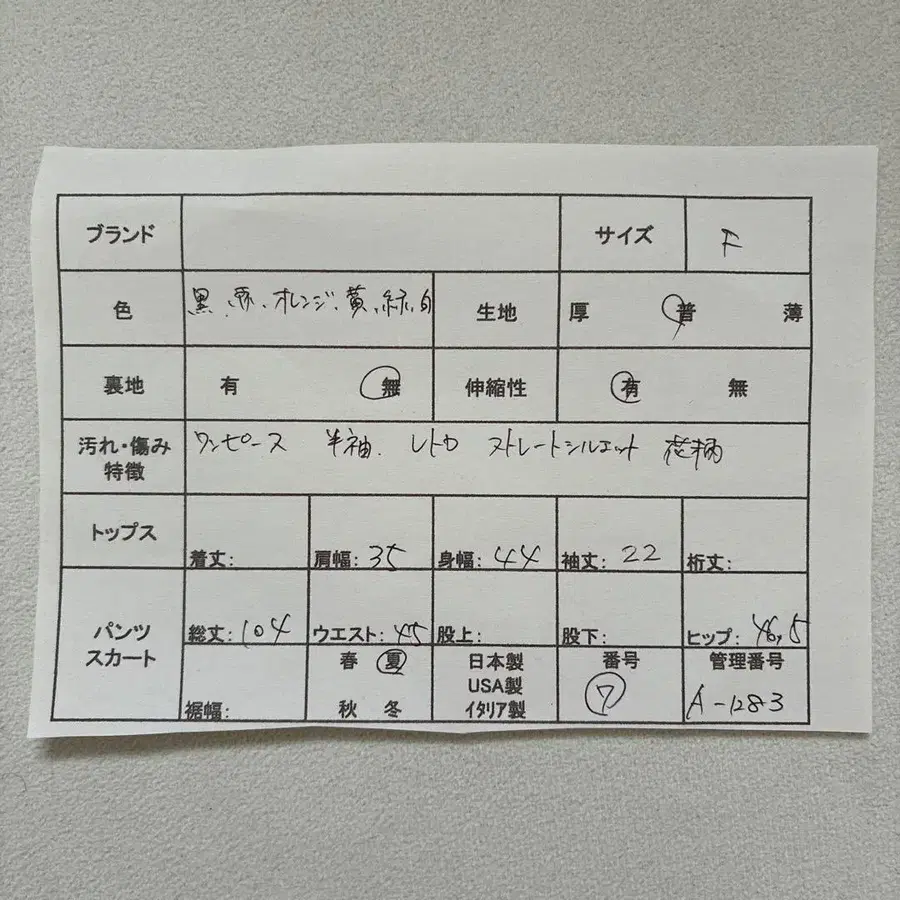 ブランド サイズ F
色 黒、赤、オレンジ、黄、緑、白 生地 厚 普 薄
裏地 有 無 伸縮性 有 無
汚れ・傷み
特徴
ワンピース 半袖. レトロ ストレートシルエット 花柄
トップス 着丈: 肩幅: 35 身幅: 44 袖丈: 22 裄丈:
パンツ
スカート
総丈: 104 ウエスト: 45 股上: 股下: ヒップ: 46,5
裾幅:
春 夏
秋 冬
日本製
USA製
イタリア製
番号
7
管理番号
A-1283